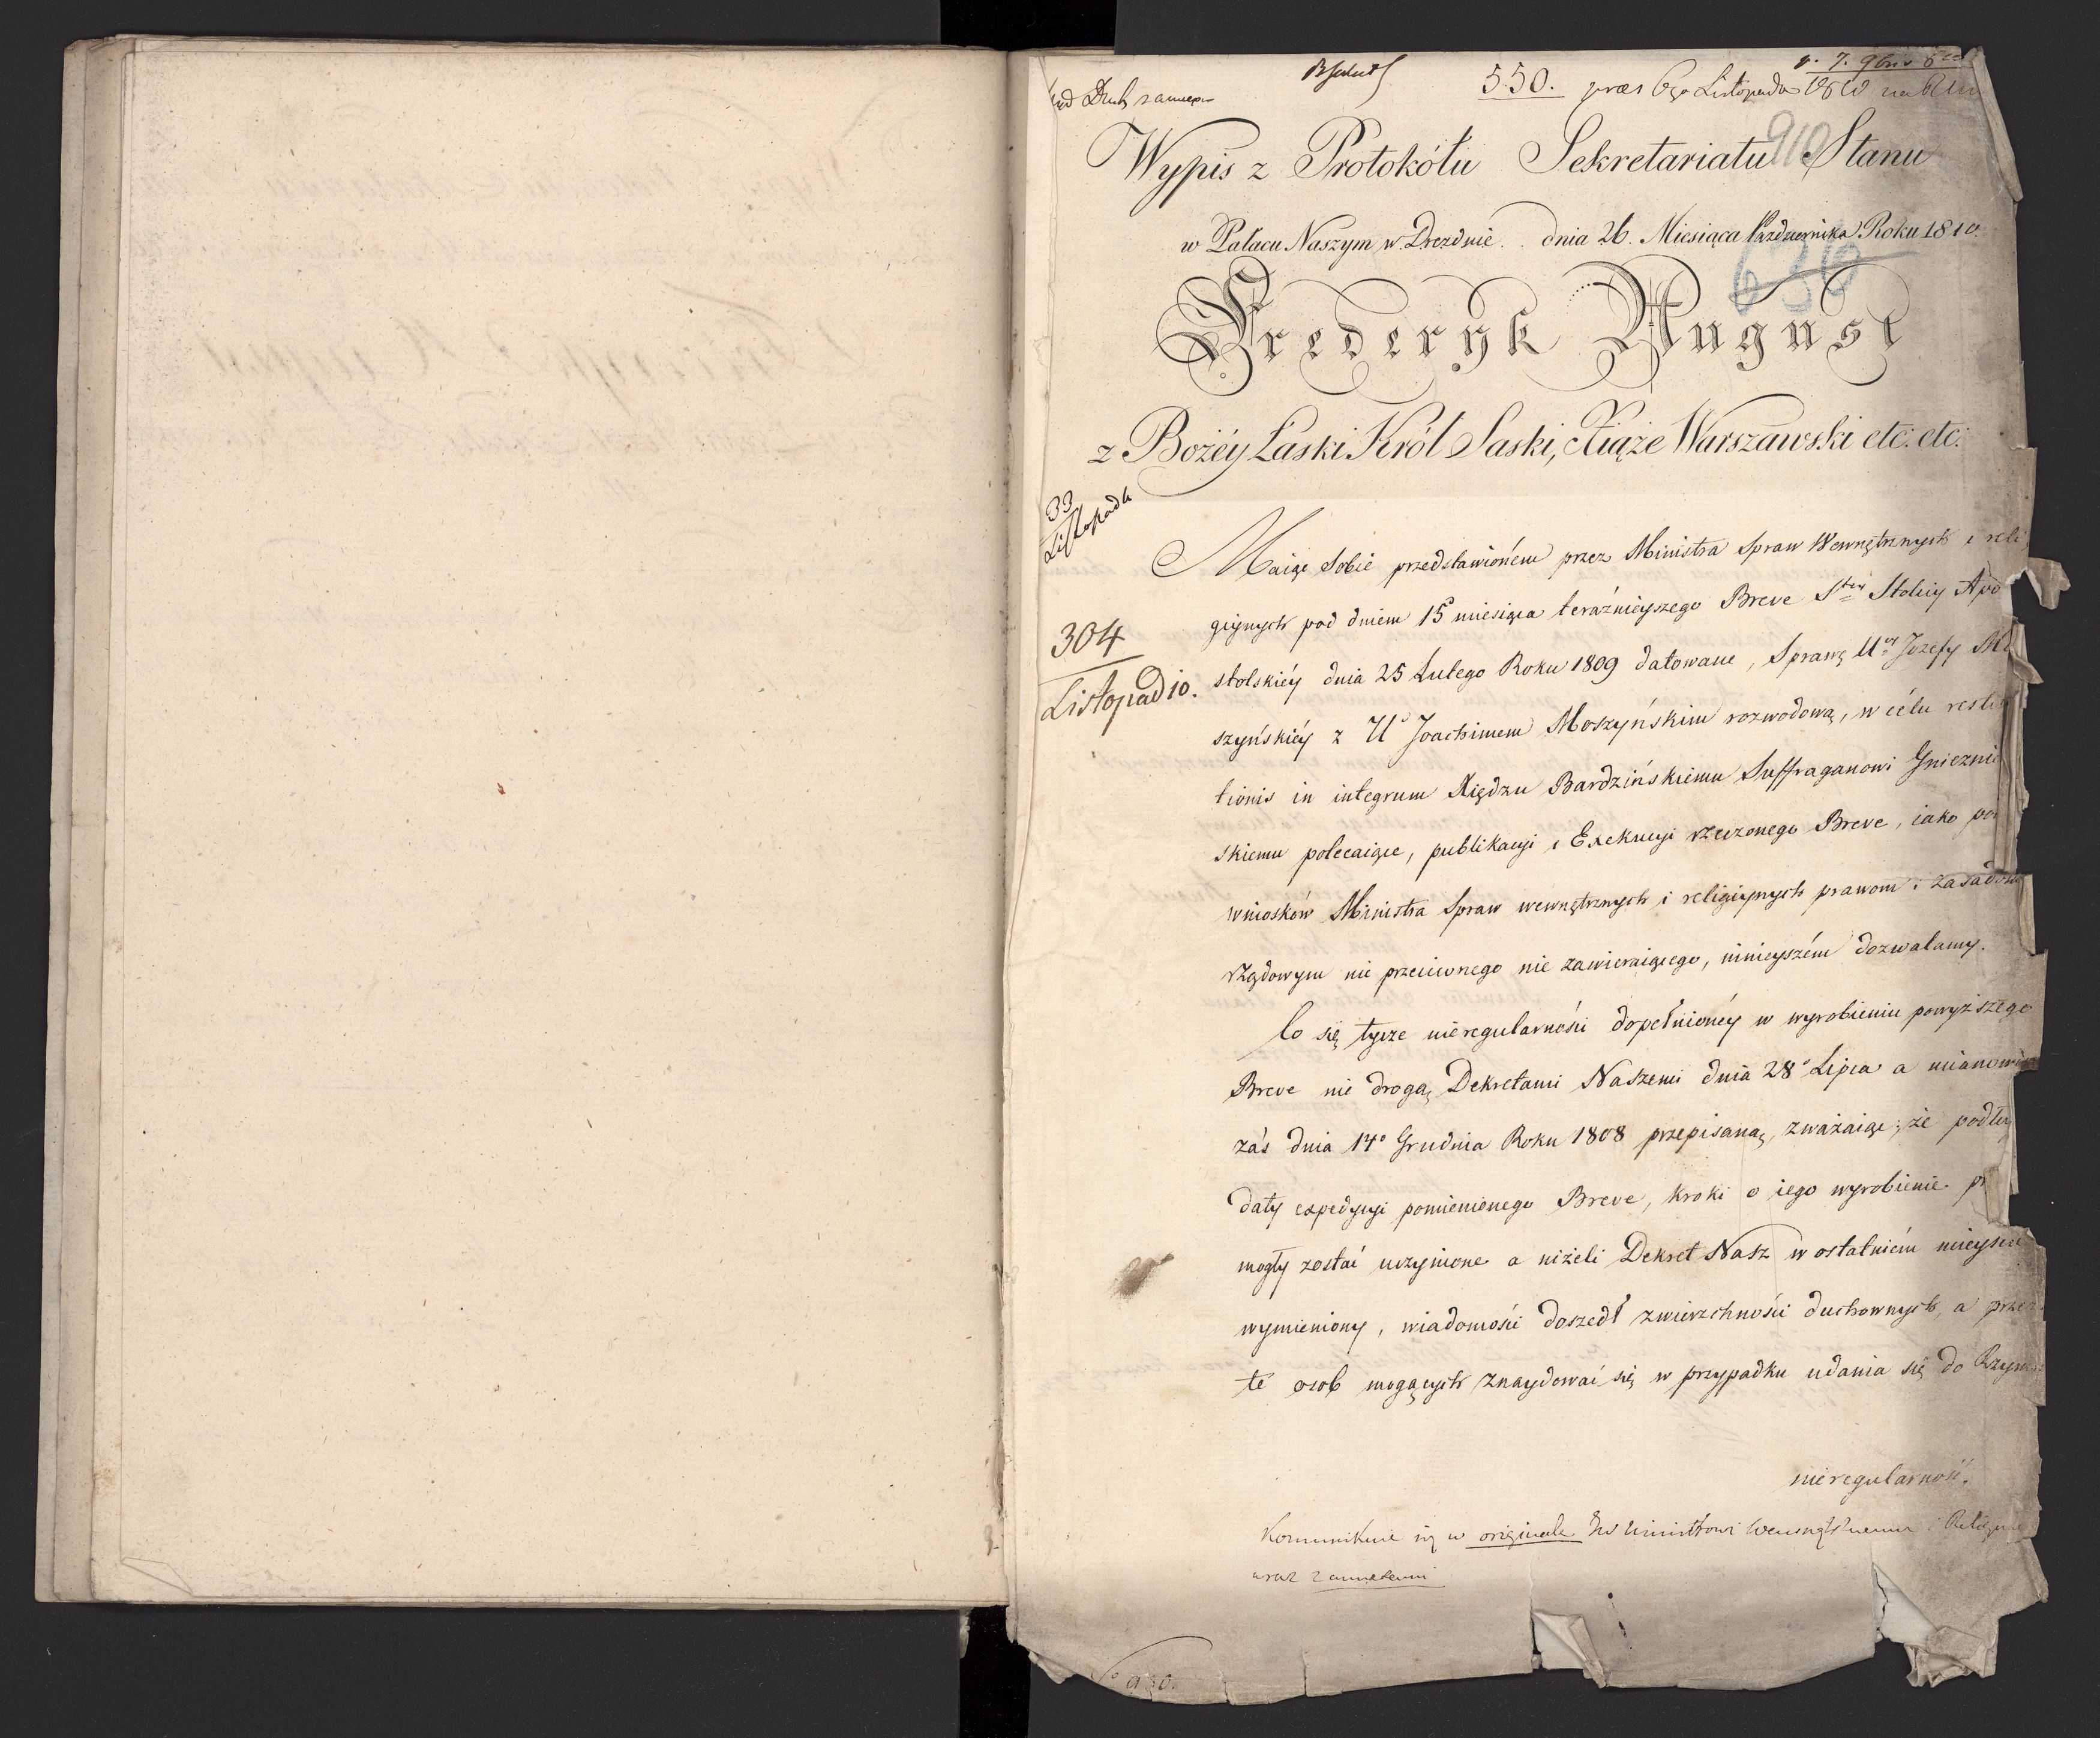 550. præs 6go Listopada 1810
910
Wypis z Protokółu Sekretariatu Stanu
w Pałacu Naszym w Dreznie. dnia 26. Miesiąca Października Roku 1810.
636
Frederyk August
z Bożéy Łaski Król Saski, Xiąże Warszawski etc. etc.
33
Listopada
Maiąc Sobie przedstawioném przez Ministra Spraw Wewnętrznych i reli
giynych pod dniem 15 miesiąca teraźnieyszego Breve Stéy Stolicy Apo
304
Listopad 10.
stolskiéy dnia 25 Lutego Roku 1809 datowane, Sprawę Ur Jozefy Mo
szyńskiéy z U Joachimem Moszyńskim rozwodową, w celu restitu
tionis in integrum Xiędzu Bardzińskiemu Suffraganowi Gnieznień
skiemu polecaiące, publikacyi i Exekucyi rzeczonego Breve, iako po
wniosków Ministra Spraw wewnętrznych i religiynych prawom i zasadom
rządowym nic przeciwnego nie zawieraiącego, ninieyszém dozwalamy.
Co się tycze nieregularności dopełnionéy w wyrobieniu powyższego
Breve nie drogą Dekretami Naszemi dnia 28o Lipca a mianowi
zaś dnia 14o Grudnia Roku 1808 przepisaną, zważaiąc, że podług
daty expedycyi pomienionego Breve, kroki o iego wyrobienie pr
mogły zostać uczynione a niżeli Dekret Nasz w ostatniém mieyscu
wymieniony, wiadomości doszedł zwierzchności duchownych, a przez
te osob mogących znaydować się w przypadku udania się do Rzymu
nieregularność.
Komunikuie się w originale Ministrowi Wewnętrznemu i Religiyne
wraz z annexami